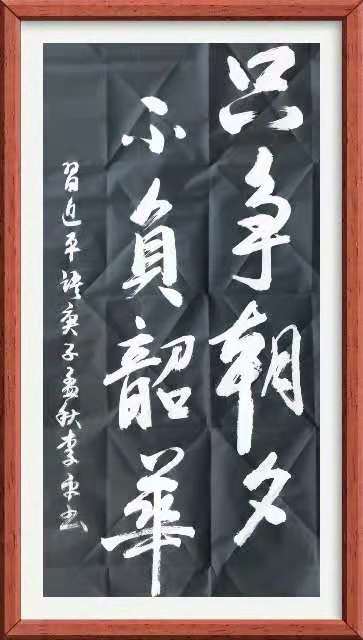 只争朝夕
不負韶華
習近平語庚子孟秋李平书